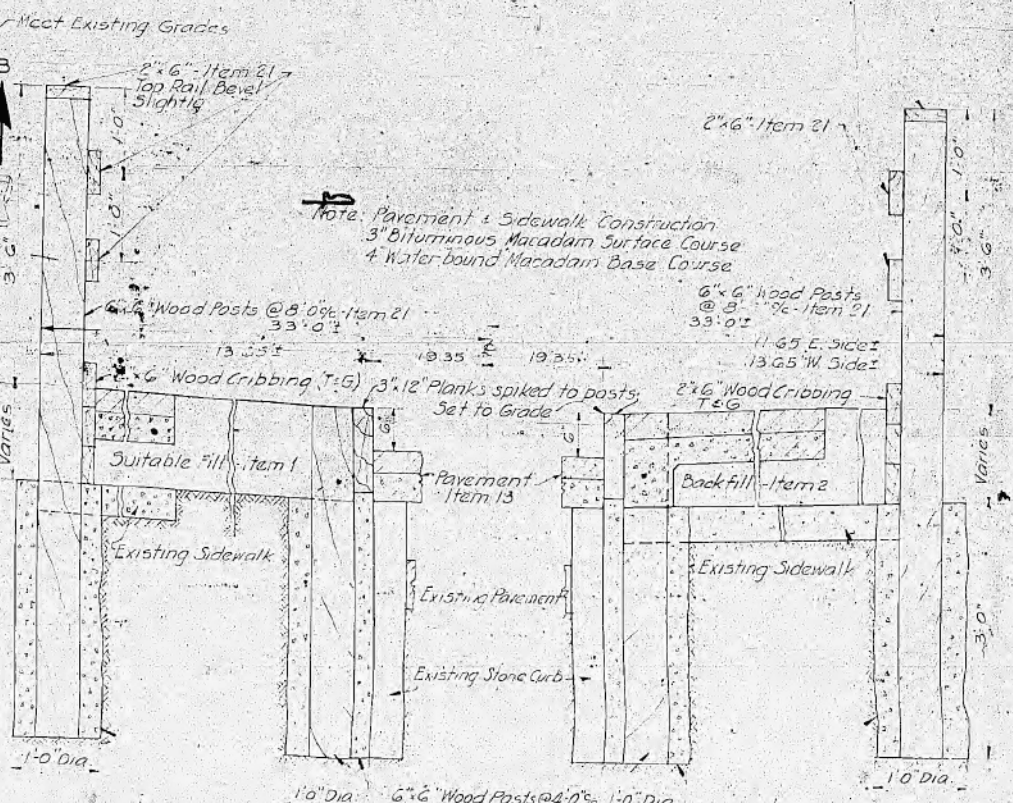 Meet Existing Grades
B
2"x6"-Item 21
Top Rail Bevel
Slightly
1'-0"
1'-0"
3'-6"
2"x6"-Item 21
1'-0"
1'-0"
3'-6"
Note: Pavement & Sidewalk Construction
3" Bituminous Macadam Surface Course
4" Waterbound Macadam Base Course
6"x6" Wood Posts @ 8'0"c/c-Item 21
33'-0"±
6"x6" Wood Posts
@ 8' %-Item 21
33'-0"±
11.65 E. Side±
13.65 W. Side±
19.35
19.35
x6" Wood Cribbing (T&G)
3"x12" Planks spiked to posts,
Set to Grade
2"x6" Wood Cribbing
T&G
Varies
6"
6"
Varies
Suitable Fill-Item 1
Pavement
Item 13
Backfill-Item 2
Existing Sidewalk
Existing Pavement
Existing Sidewalk
Existing Stone Curb
3'-0"
1'-0" Dia.
1'0" Dia.
6"x6" Wood Posts @ 4'-0"c/c
1'-0" Dia.
1'0" Dia.